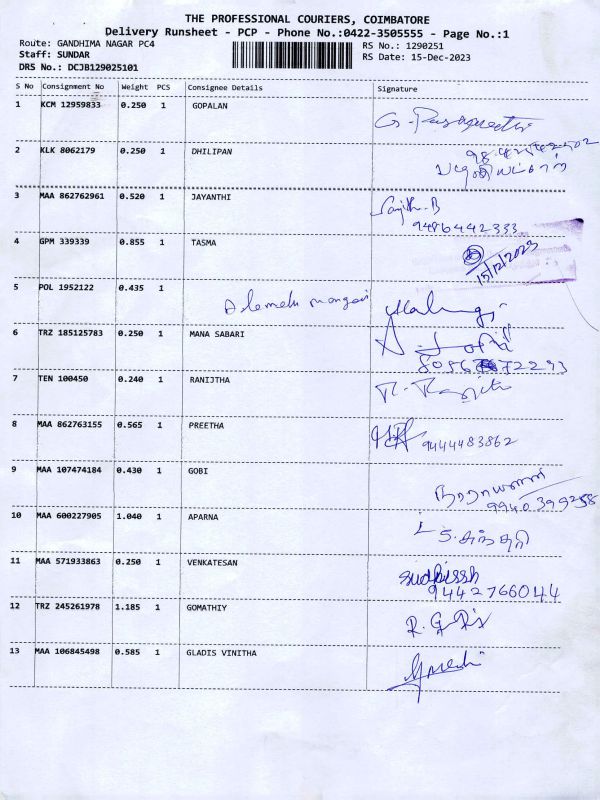 THE PROFESSIONAL COURIERS, COIMBATORE
Delivery Runsheet - PCP - Phone No.:0422-3505555 - Page No.:1
Route: GANDHIMA NAGAR PC4
RS No.: 1290251
Staff: SUNDAR
RS Date: 15-Dec-2023
DRS No.: DCJB129025101
S No Consignment No Weight PCS Consignee Details Signature
1 KCM 12959833 0.250 1 GOPALAN
2 KLK 8062179 0.250 1 DHILIPAN
3 MAA 862762961 0.520 1 JAYANTHI Sajith.B
9486442333
4 GPM 339339 0.855 1 TASMA
15/12/2023
5 POL 1952122 0.435 1
6 TRZ 185125783 0.250 1 MANA SABARI
7 TEN 100450 0.240 1 RANIJTHA
8 MAA 862763155 0.565 1 PREETHA 9444483862
9 MAA 107474184 0.430 1 GOBI
10 MAA 600227905 1.040 1 APARNA
11 MAA 571933863 0.250 1 VENKATESAN
9442766044
12 TRZ 245261978 1.185 1 GOMATHIY
13 MAA 106845498 0.585 1 GLADIS VINITHA